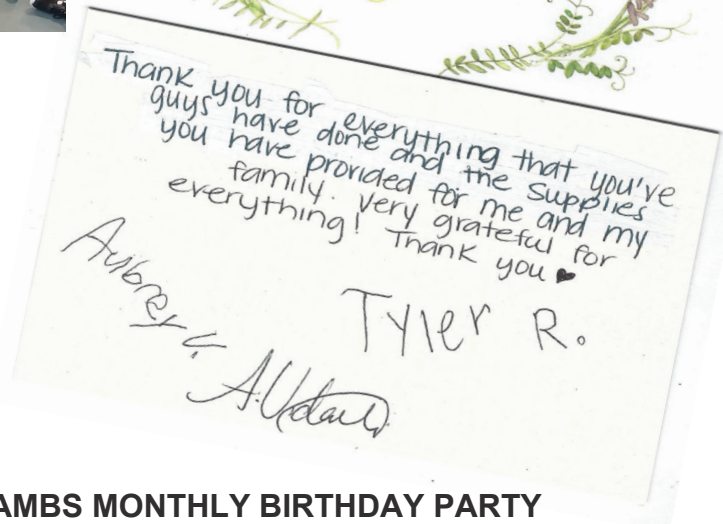 Thank you for everything that you've
guys have done and the supplies
you have provided for me and my
family. Very grateful for
everything! Thank you ♥
Tyler R.
Aubrey V.
AMBS MONTHLY BIRTHDAY PARTY